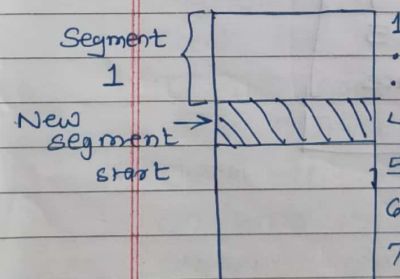 Segment
1
New
segment
start
1
.
.
4
5
6
7